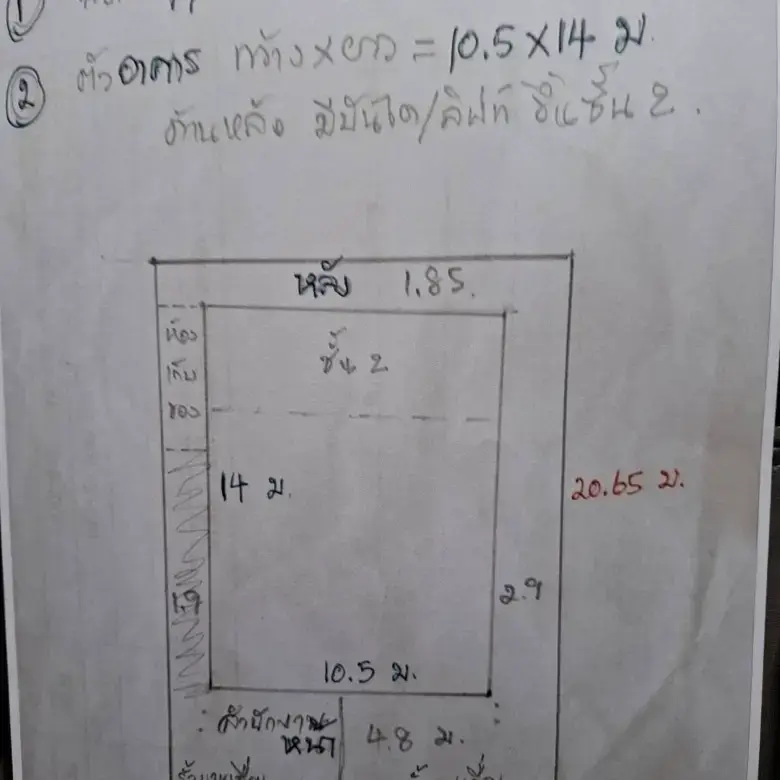 ②  ตัวอาคาร กว้าง×ยาว = 10.5×14 ม.
ด้านหลัง มีบันได/ลิฟท์ ขึ้นชั้น 2.
หลัง 1.85.
ห้อง
เก็บ
ของ
ชั้น 2
14 ม.
20.65 ม.
2.9
10.5 ม.
สำนักงาน
หน้า
4.8 ม.